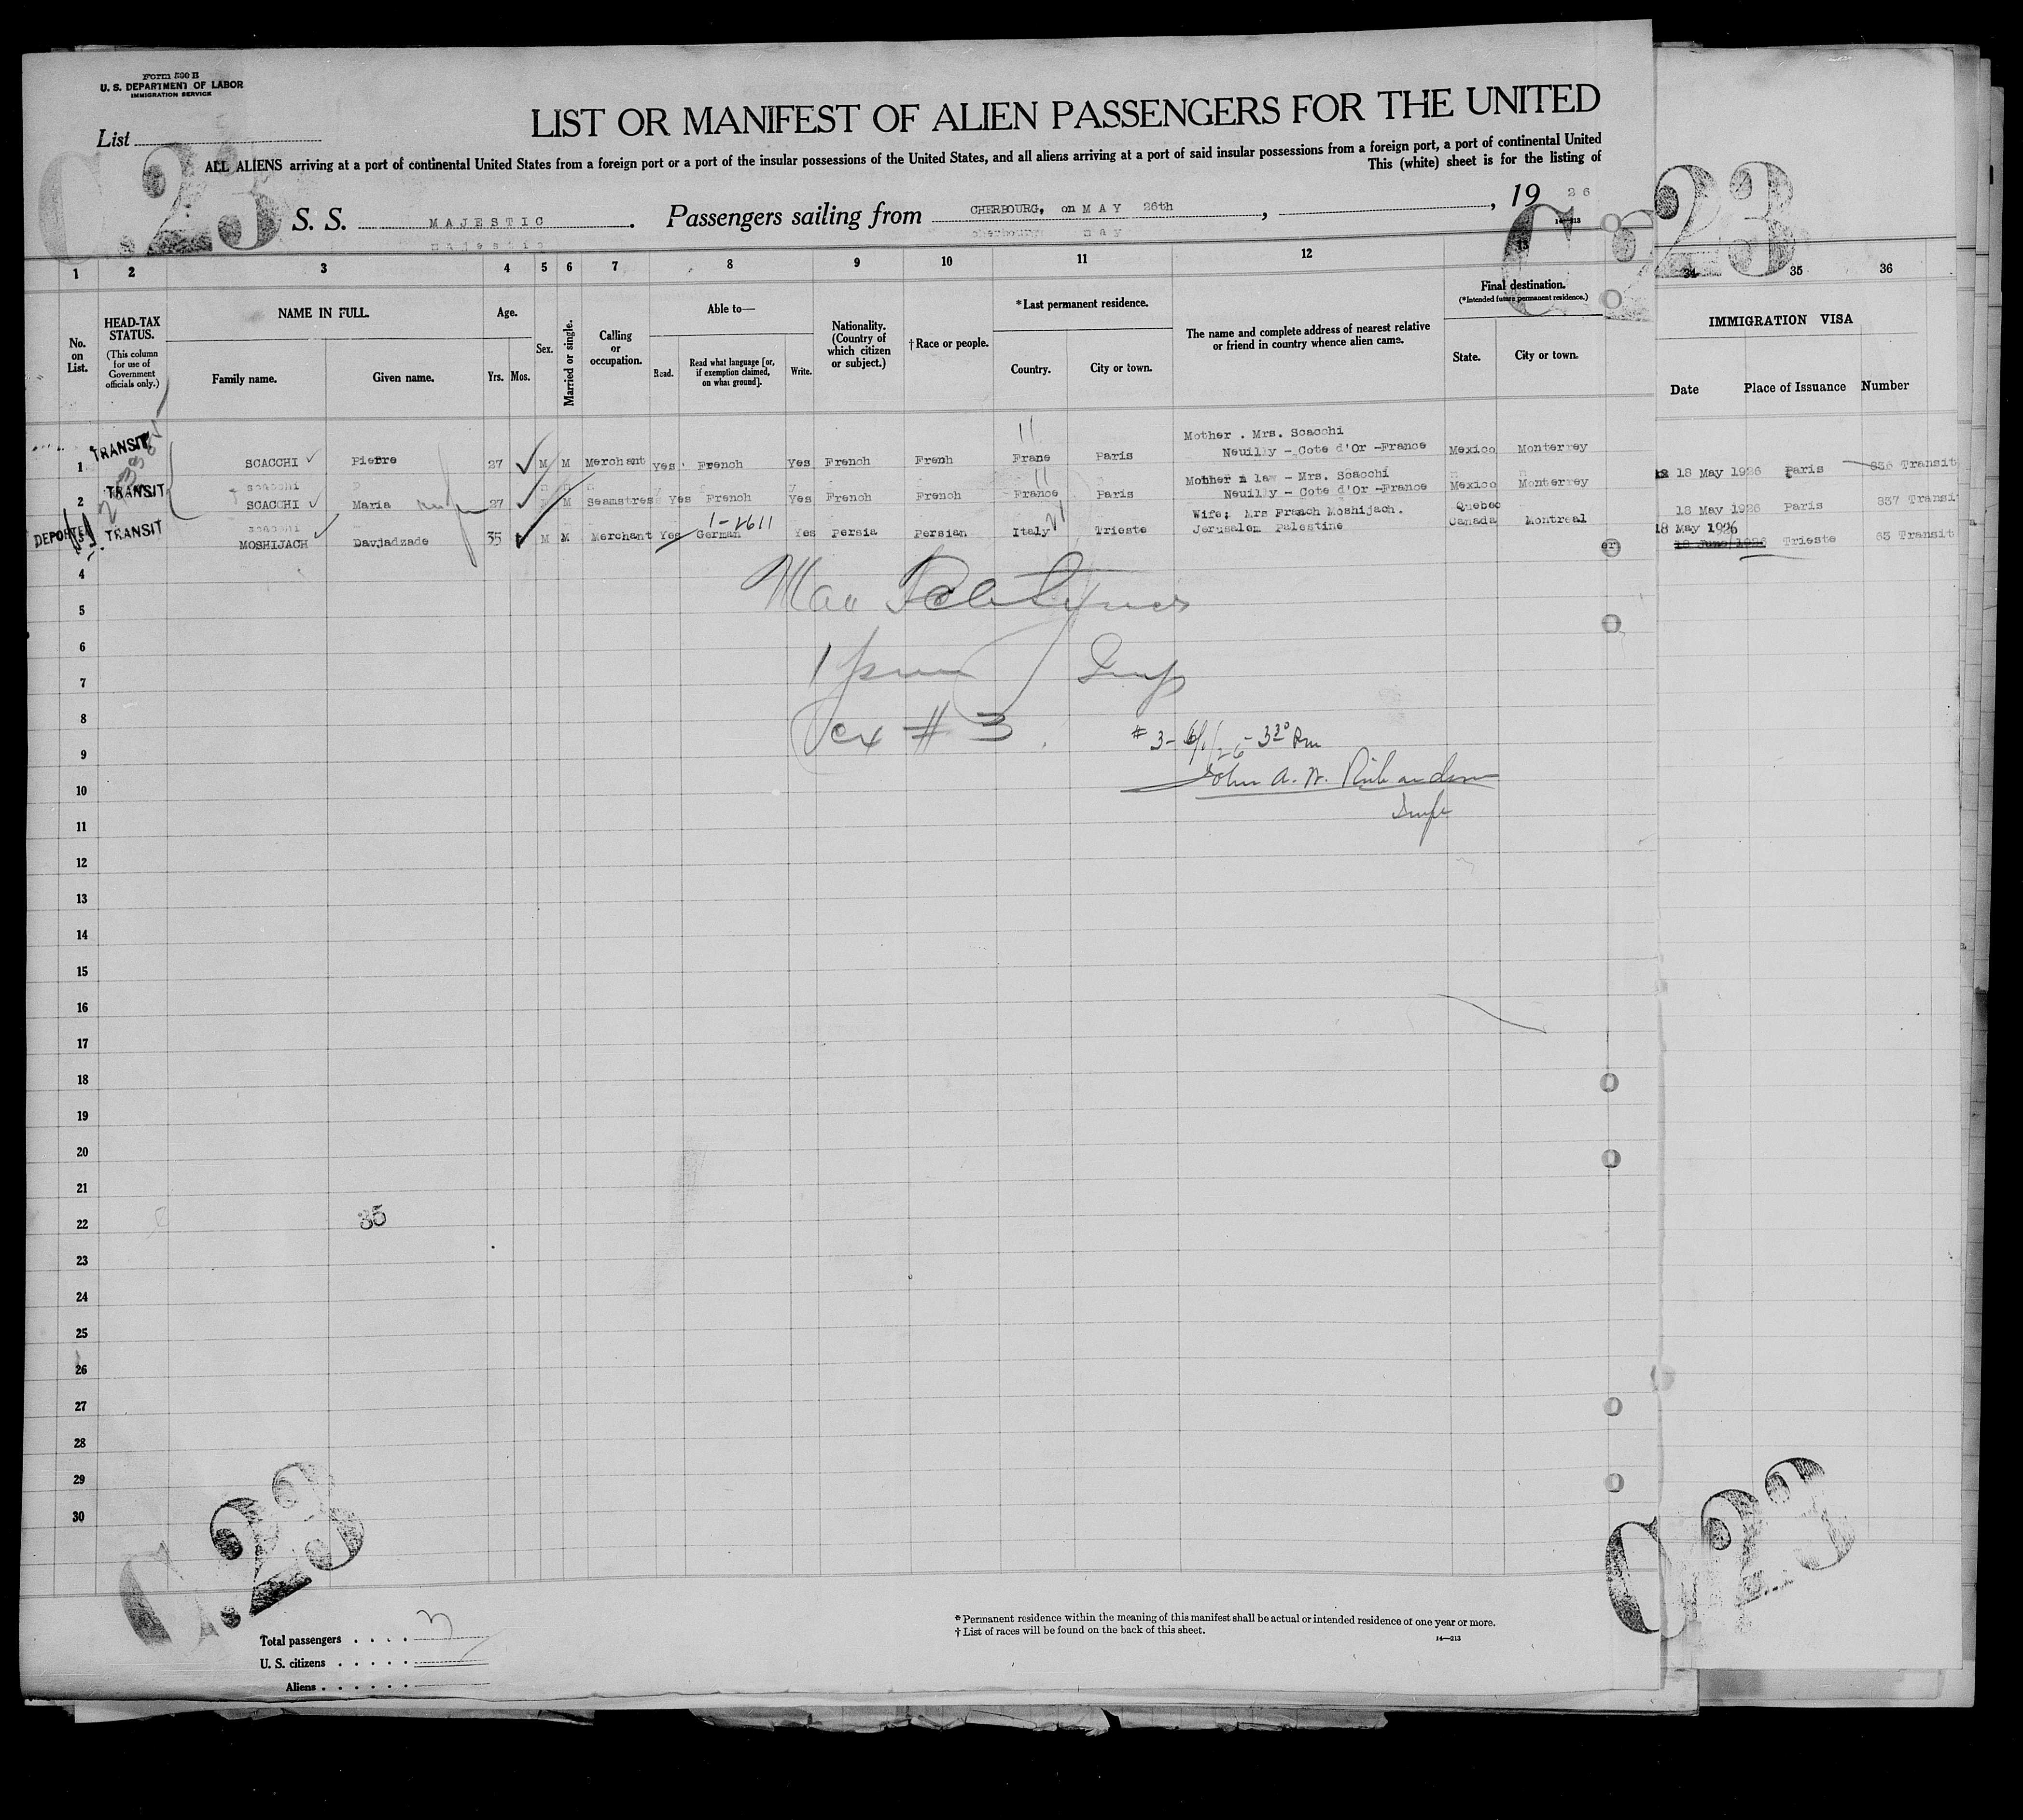 Form 500 B
U. S. DEPARTMENT OF LABOR
IMMIGRATION SERVICE
List
LIST OR MANIFEST OF ALIEN PASSENGERS FOR THE UNITED
ALL ALIENS arriving at a port of continental United States from a foreign port or a port of the insular possessions of the United States, and all aliens arriving at a port of said insular possessions from a foreign port, a port of continental United
This (white) sheet is for the listing of
C.23
C 23
S. S. MAJESTIC. Passengers sailing from CHERBOURG, on MAY 26th, , 19 26
14—213
1 2 3 4 5 6 7 8 9 10 11 12 13 34 35 36
No. on List.
HEAD-TAX STATUS.
(This column for use of Government officials only.)
NAME IN FULL.
Family name. Given name.
Age.
Yrs. Mos.
Sex.
Married or single.
Calling or occupation.
Able to—
Read. Read what language [or, if exemption claimed, on what ground]. Write.
Nationality. (Country of which citizen or subject.)
†Race or people.
*Last permanent residence.
Country. City or town.
The name and complete address of nearest relative or friend in country whence alien came.
Final destination.
(*Intended future permanent residence.)
State. City or town.
IMMIGRATION VISA
Date Place of Issuance Number
1 TRANSIT SCACCHI Pierre 27 M M Merchant Yes French Yes French Frenh Frane Paris Mother . Mrs. Scacchi
Neuilly - Cote d'Or -France Mexico Monterrey 18 May 1926 Paris 836 Transit
2 TRANSIT SCACCHI Maria 27 M Seamstress Yes French Yes French French France Paris Mother n law - Mrs. Scacchi
Neuilly - Cote d'Or -France Mexico Monterrey 18 May 1926 Paris 837 Transit
DEPORTED TRANSIT MOSHIJACH Davjadzade 35 M M Merchant Yes German Yes Persia Persian Italy Trieste Wife: Mrs Franch Moshijach.
Jerusalem Palestine Quebec Canada Montreal 18 May 1926 18 June 1926 Trieste 65 Transit
1-2611
4
5
6
7
ex # 3
8
# 3- 6/1/26 - 3 30 Pm
9
John A. W. Richardson
10
11
12
13
14
15
16
17
18
19
20
21
22 35
23
24
25
26
27
28
29
30
C.23
C 23
Total passengers . . . .
U. S. citizens . . . . .
Aliens . . . . . .
* Permanent residence within the meaning of this manifest shall be actual or intended residence of one year or more.
† List of races will be found on the back of this sheet.
14—213